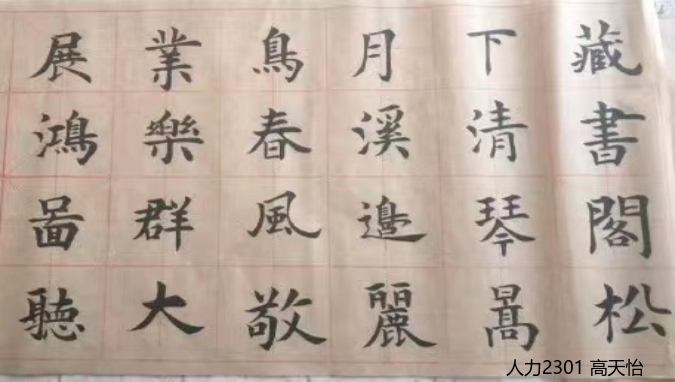 藏書閣松
下清琴暠
月溪邊麗
鳥春風敬
業樂群大
展鴻啚聽
人力2301 高天怡